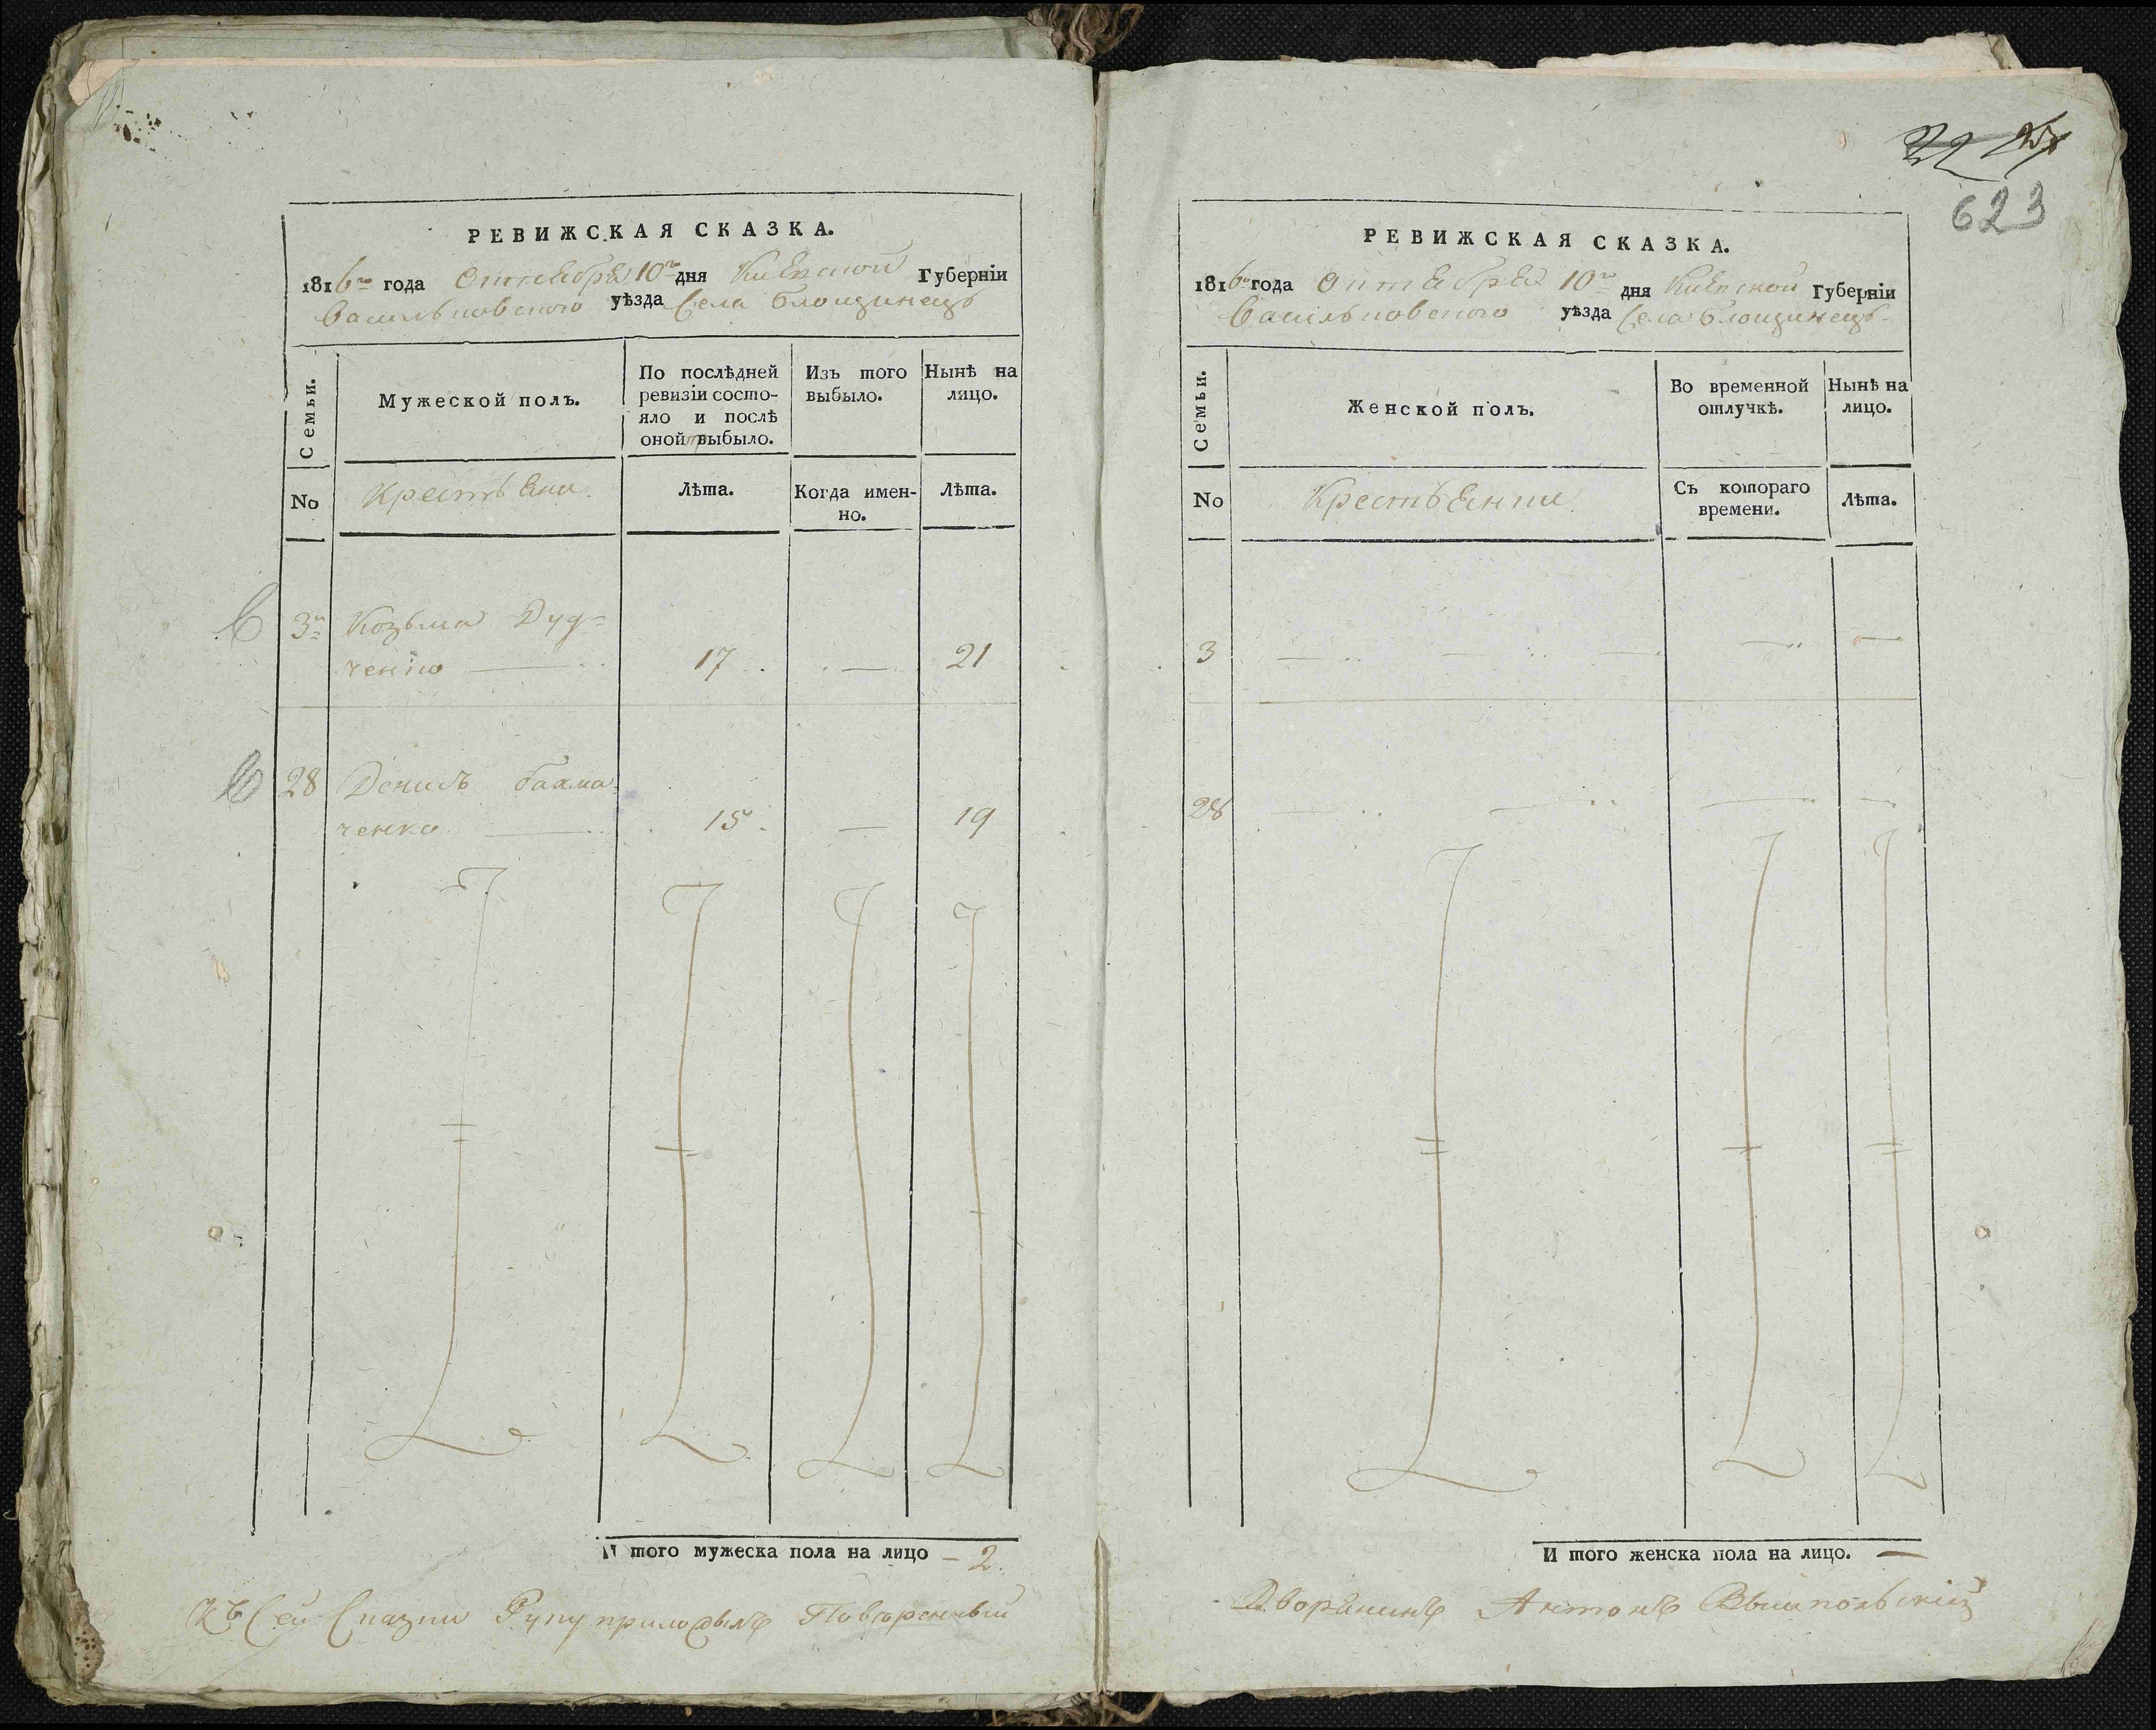 РЕВИЖСКАЯ СКАЗКА.
1816го года Октября 10го дня Киевской Губернїи
Васильковского уѣзда Села Блощинецъ
Семьи.
Мужеской полъ.
По послѣдней ревизїи состояло и послѣ оной прибыло.
Изъ того выбыло.
Нынѣ на лицо.
No
Крестьяни.
Лѣта.
Когда именно.
Лѣта.
3й Козьма Дуд=
ченко 17 — 21
28 Денисъ
ченко 15 — 19
И того мужеска пола на лицо — 2.
Къ Сей Сказки Руку приложылъ Повѣренный
623
РЕВИЖСКАЯ СКАЗКА.
1816го года Октября 10го дня Киевской Губернїи
Васильковского уѣзда Села Блощинецъ
Семьи.
Женской полъ.
Во временной отлучкѣ.
Нынѣ на лицо.
No
Крестьянки.
Съ котораго времени.
Лѣта.
3
28
И того женска пола на лицо. —
Дворянинъ Антонъ Вышпольскій